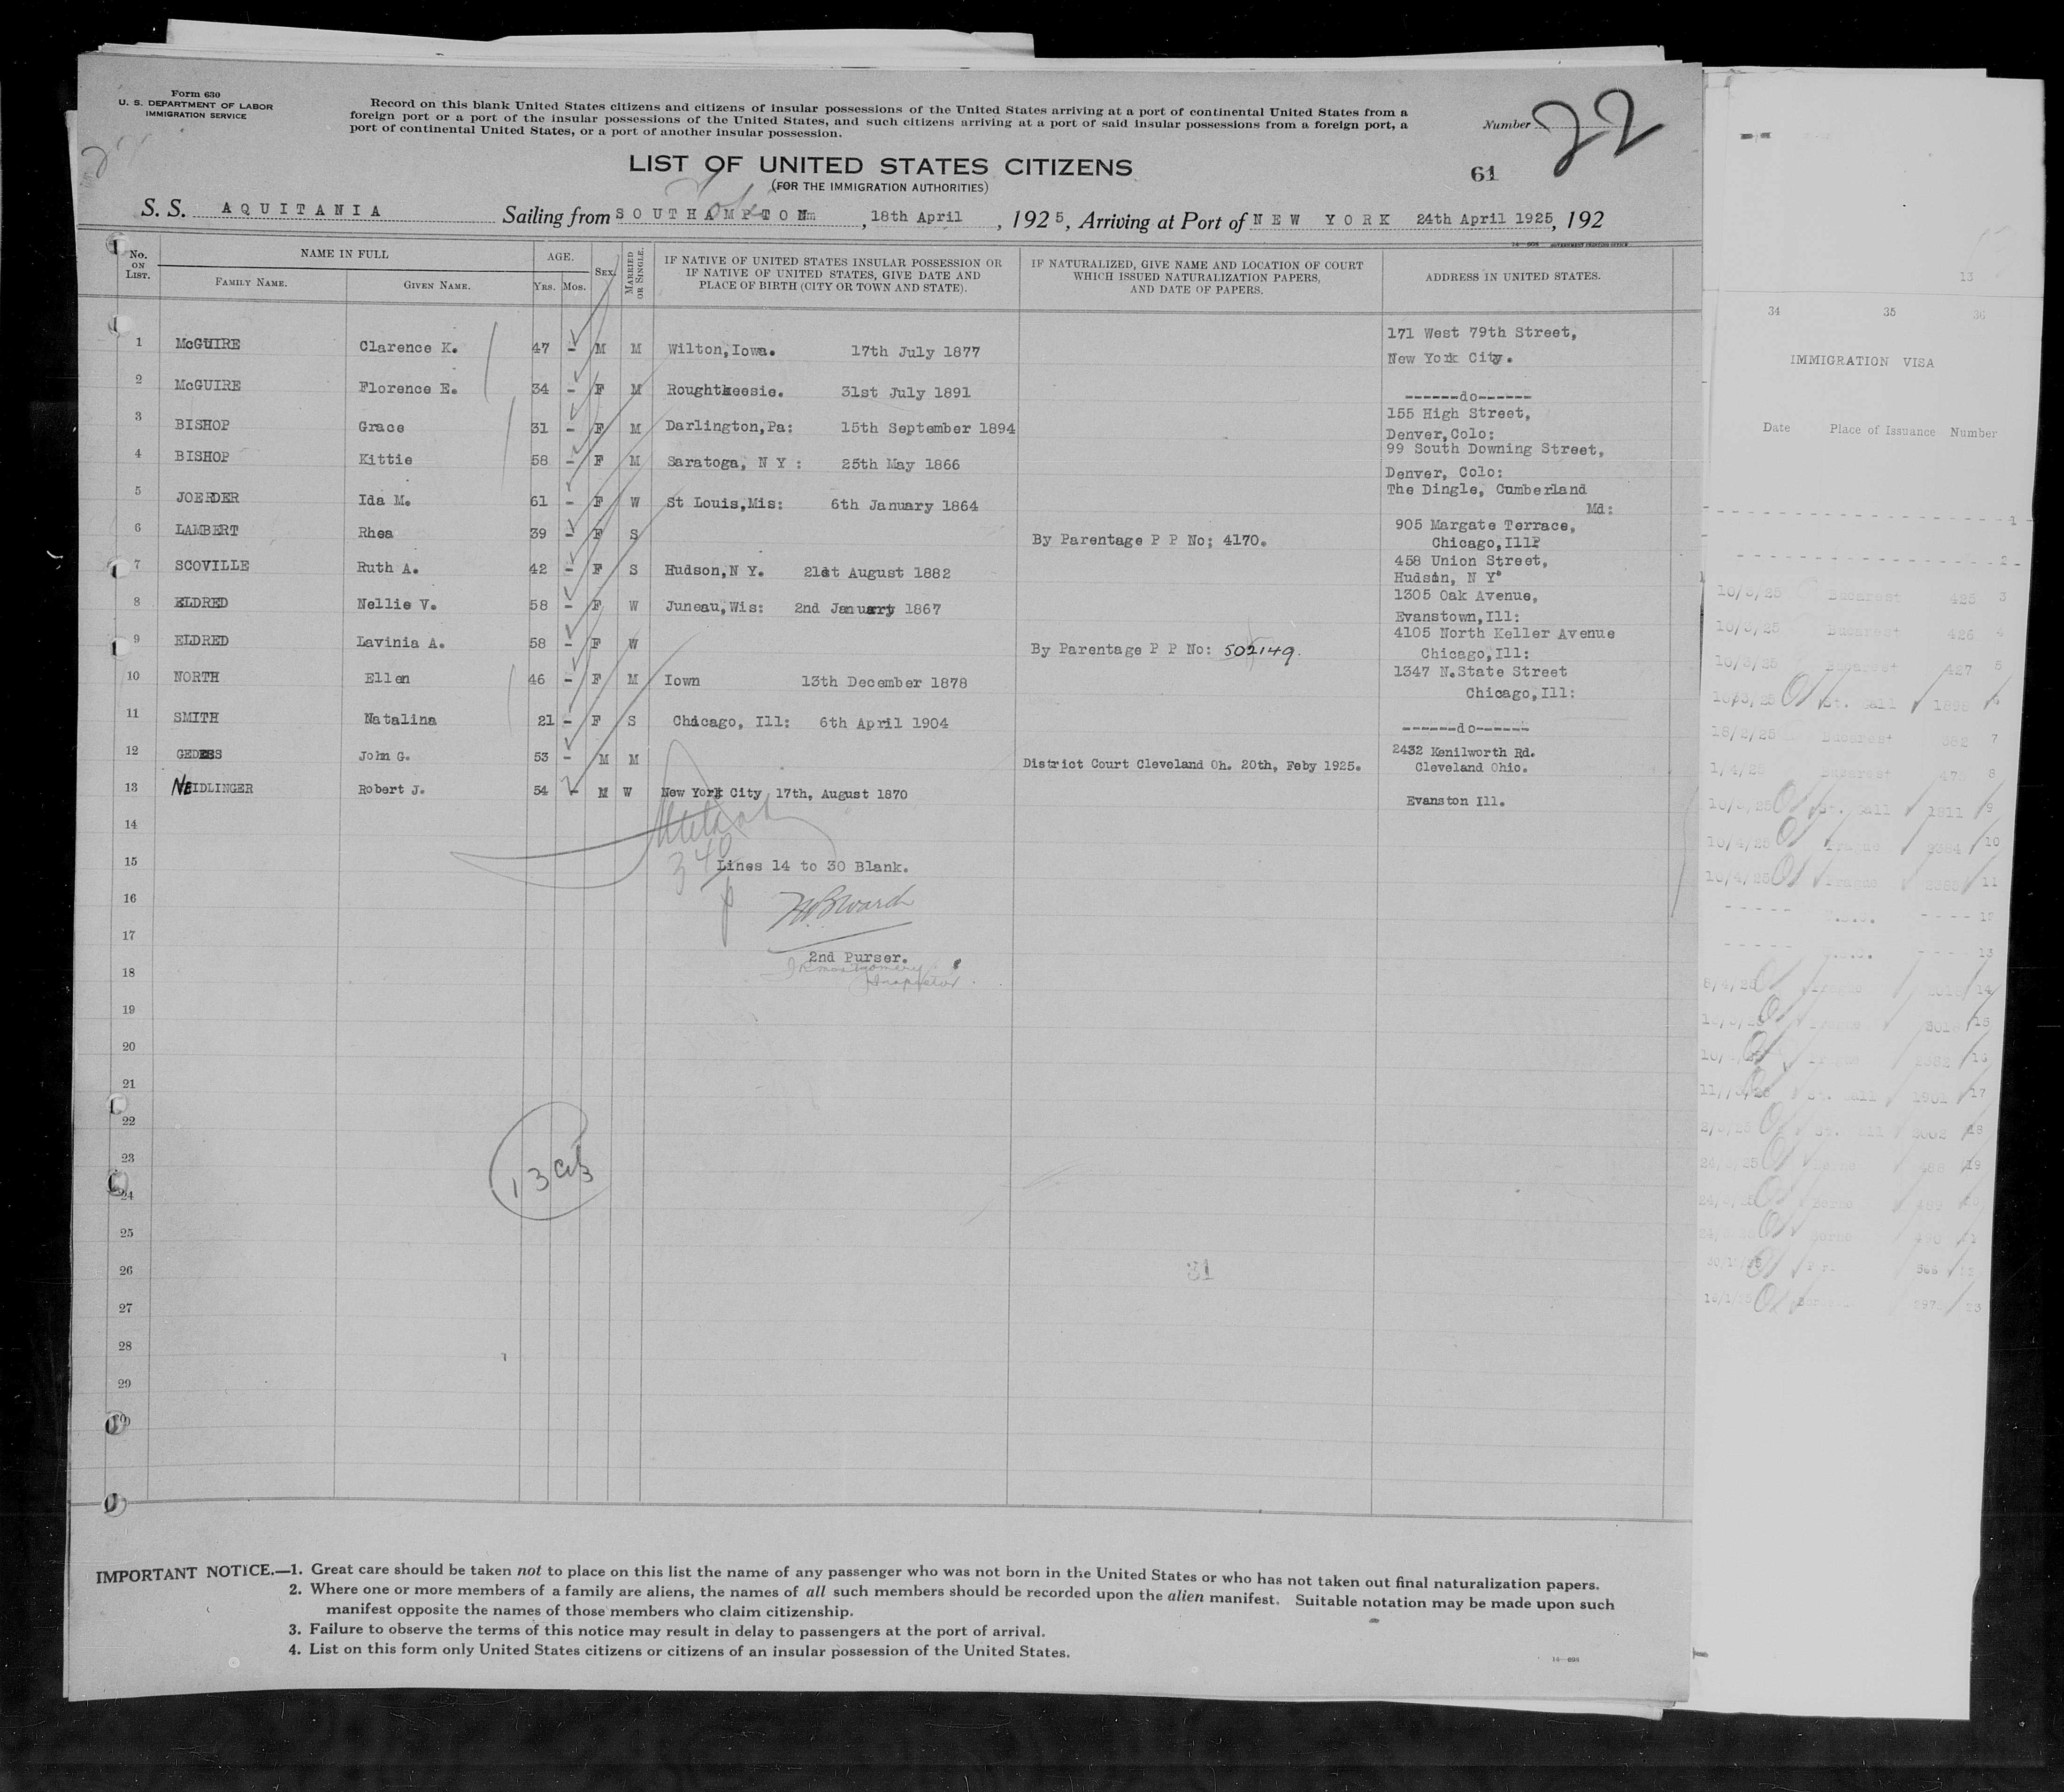 Form 630
U. S. DEPARTMENT OF LABOR
IMMIGRATION SERVICE
Record on this blank United States citizens and citizens of insular possessions of the United States arriving at a port of continental United States from a
foreign port or a port of the insular possessions of the United States, and such citizens arriving at a port of said insular possessions from a foreign port, a
port of continental United States, or a port of another insular possession.
Number 22
61
LIST OF UNITED STATES CITIZENS
(FOR THE IMMIGRATION AUTHORITIES)
S. S. AQUITANIA Sailing from SOUTHAMPTON, 18th April, 1925, Arriving at Port of NEW YORK 24th April 1925, 192
14—694 GOVERNMENT PRINTING OFFICE
No. ON LIST. NAME IN FULL AGE. SEX. MARRIED OR SINGLE. IF NATIVE OF UNITED STATES INSULAR POSSESSION OR IF NATIVE OF UNITED STATES, GIVE DATE AND PLACE OF BIRTH (CITY OR TOWN AND STATE). IF NATURALIZED, GIVE NAME AND LOCATION OF COURT WHICH ISSUED NATURALIZATION PAPERS, AND DATE OF PAPERS. ADDRESS IN UNITED STATES.
FAMILY NAME. GIVEN NAME. YRS. MOS.
1 McGUIRE Clarence K. 47 - M M Wilton,Iowa. 17th July 1877 171 West 79th Street,
New York City.
2 McGUIRE Florence E. 34 - F M Roughtkeesie. 31st July 1891 ------do------
3 BISHOP Grace 31 - F M Darlington,Pa: 15th September 1894 155 High Street,
Denver,Colo:
4 BISHOP Kittie 58 - F M Saratoga, N Y : 25th May 1866 99 South Downing Street,
Denver, Colo:
5 JOERDER Ida M. 61 - F W St Louis,Mis: 6th January 1864 The Dingle, Cumberland
Md:
6 LAMBERT Rhea 39 - F S By Parentage P P No; 4170. 905 Margate Terrace,
Chicago,Ill
7 SCOVILLE Ruth A. 42 - F S Hudson,N Y. 21st August 1882 458 Union Street,
Hudson, N Y
8 ELDRED Nellie V. 58 - F W Juneau,Wis: 2nd January 1867 1305 Oak Avenue,
Evanstown,Ill:
9 ELDRED Lavinia A. 58 - F W By Parentage P P No: 502149. 4105 North Keller Avenue
Chicago,Ill:
10 NORTH Ellen 46 - F M Iown 13th December 1878 1347 N.State Street
Chicago,Ill:
11 SMITH Natalina 21 - F S Chicago, Ill: 6th April 1904 ------do------
12 GEDESS John G. 53 - M M District Court Cleveland Oh. 20th, Feby 1925. 2432 Kenilworth Rd.
Cleveland Ohio.
13 NEIDLINGER Robert J. 54 - M W New York City 17th, August 1870 Evanston Ill.
14
15 Lines 14 to 30 Blank.
340
16
17
2nd Purser.
18 Montgomery
Inspector
19
20
21
22
23
13
24
25
26
31
27
28
29
IMPORTANT NOTICE.—1. Great care should be taken not to place on this list the name of any passenger who was not born in the United States or who has not taken out final naturalization papers.
2. Where one or more members of a family are aliens, the names of all such members should be recorded upon the alien manifest. Suitable notation may be made upon such
manifest opposite the names of those members who claim citizenship.
3. Failure to observe the terms of this notice may result in delay to passengers at the port of arrival.
4. List on this form only United States citizens or citizens of an insular possession of the United States.
14—694
13
34 35 36
IMMIGRATION VISA
Date Place of Issuance Number
1
2
10/3/25 Bucarest 425 3
10/3/25 Bucarest 426 4
10/3/25 Bucarest 427 5
7
8
9
10
11
13
14
15
16
17
18
19